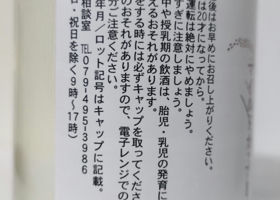 後はお早めにお召し上がりください。
は20才になってから。
運転は絶対にやめましょう。
すぎに注意しましょう。
中や授乳期の飲酒は、胎児・乳児の発育に
えるおそれがあります。
をする時には必ずキャップを取ってくださ
のおそれがありますので、電子レンジでの
分ご注意ください。
年月／ロット記号はキャップに記載。
相談室 TEL079-495-3986
日・祝日を除く9時～17時）